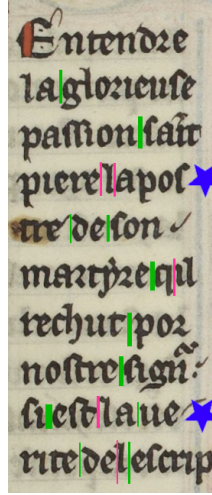 Entendre
la glorieuse
passion saīt
piere lapos
tre de son
martyre qil
rechut por
nostre sign̄.
si est la ue
rite del escrip